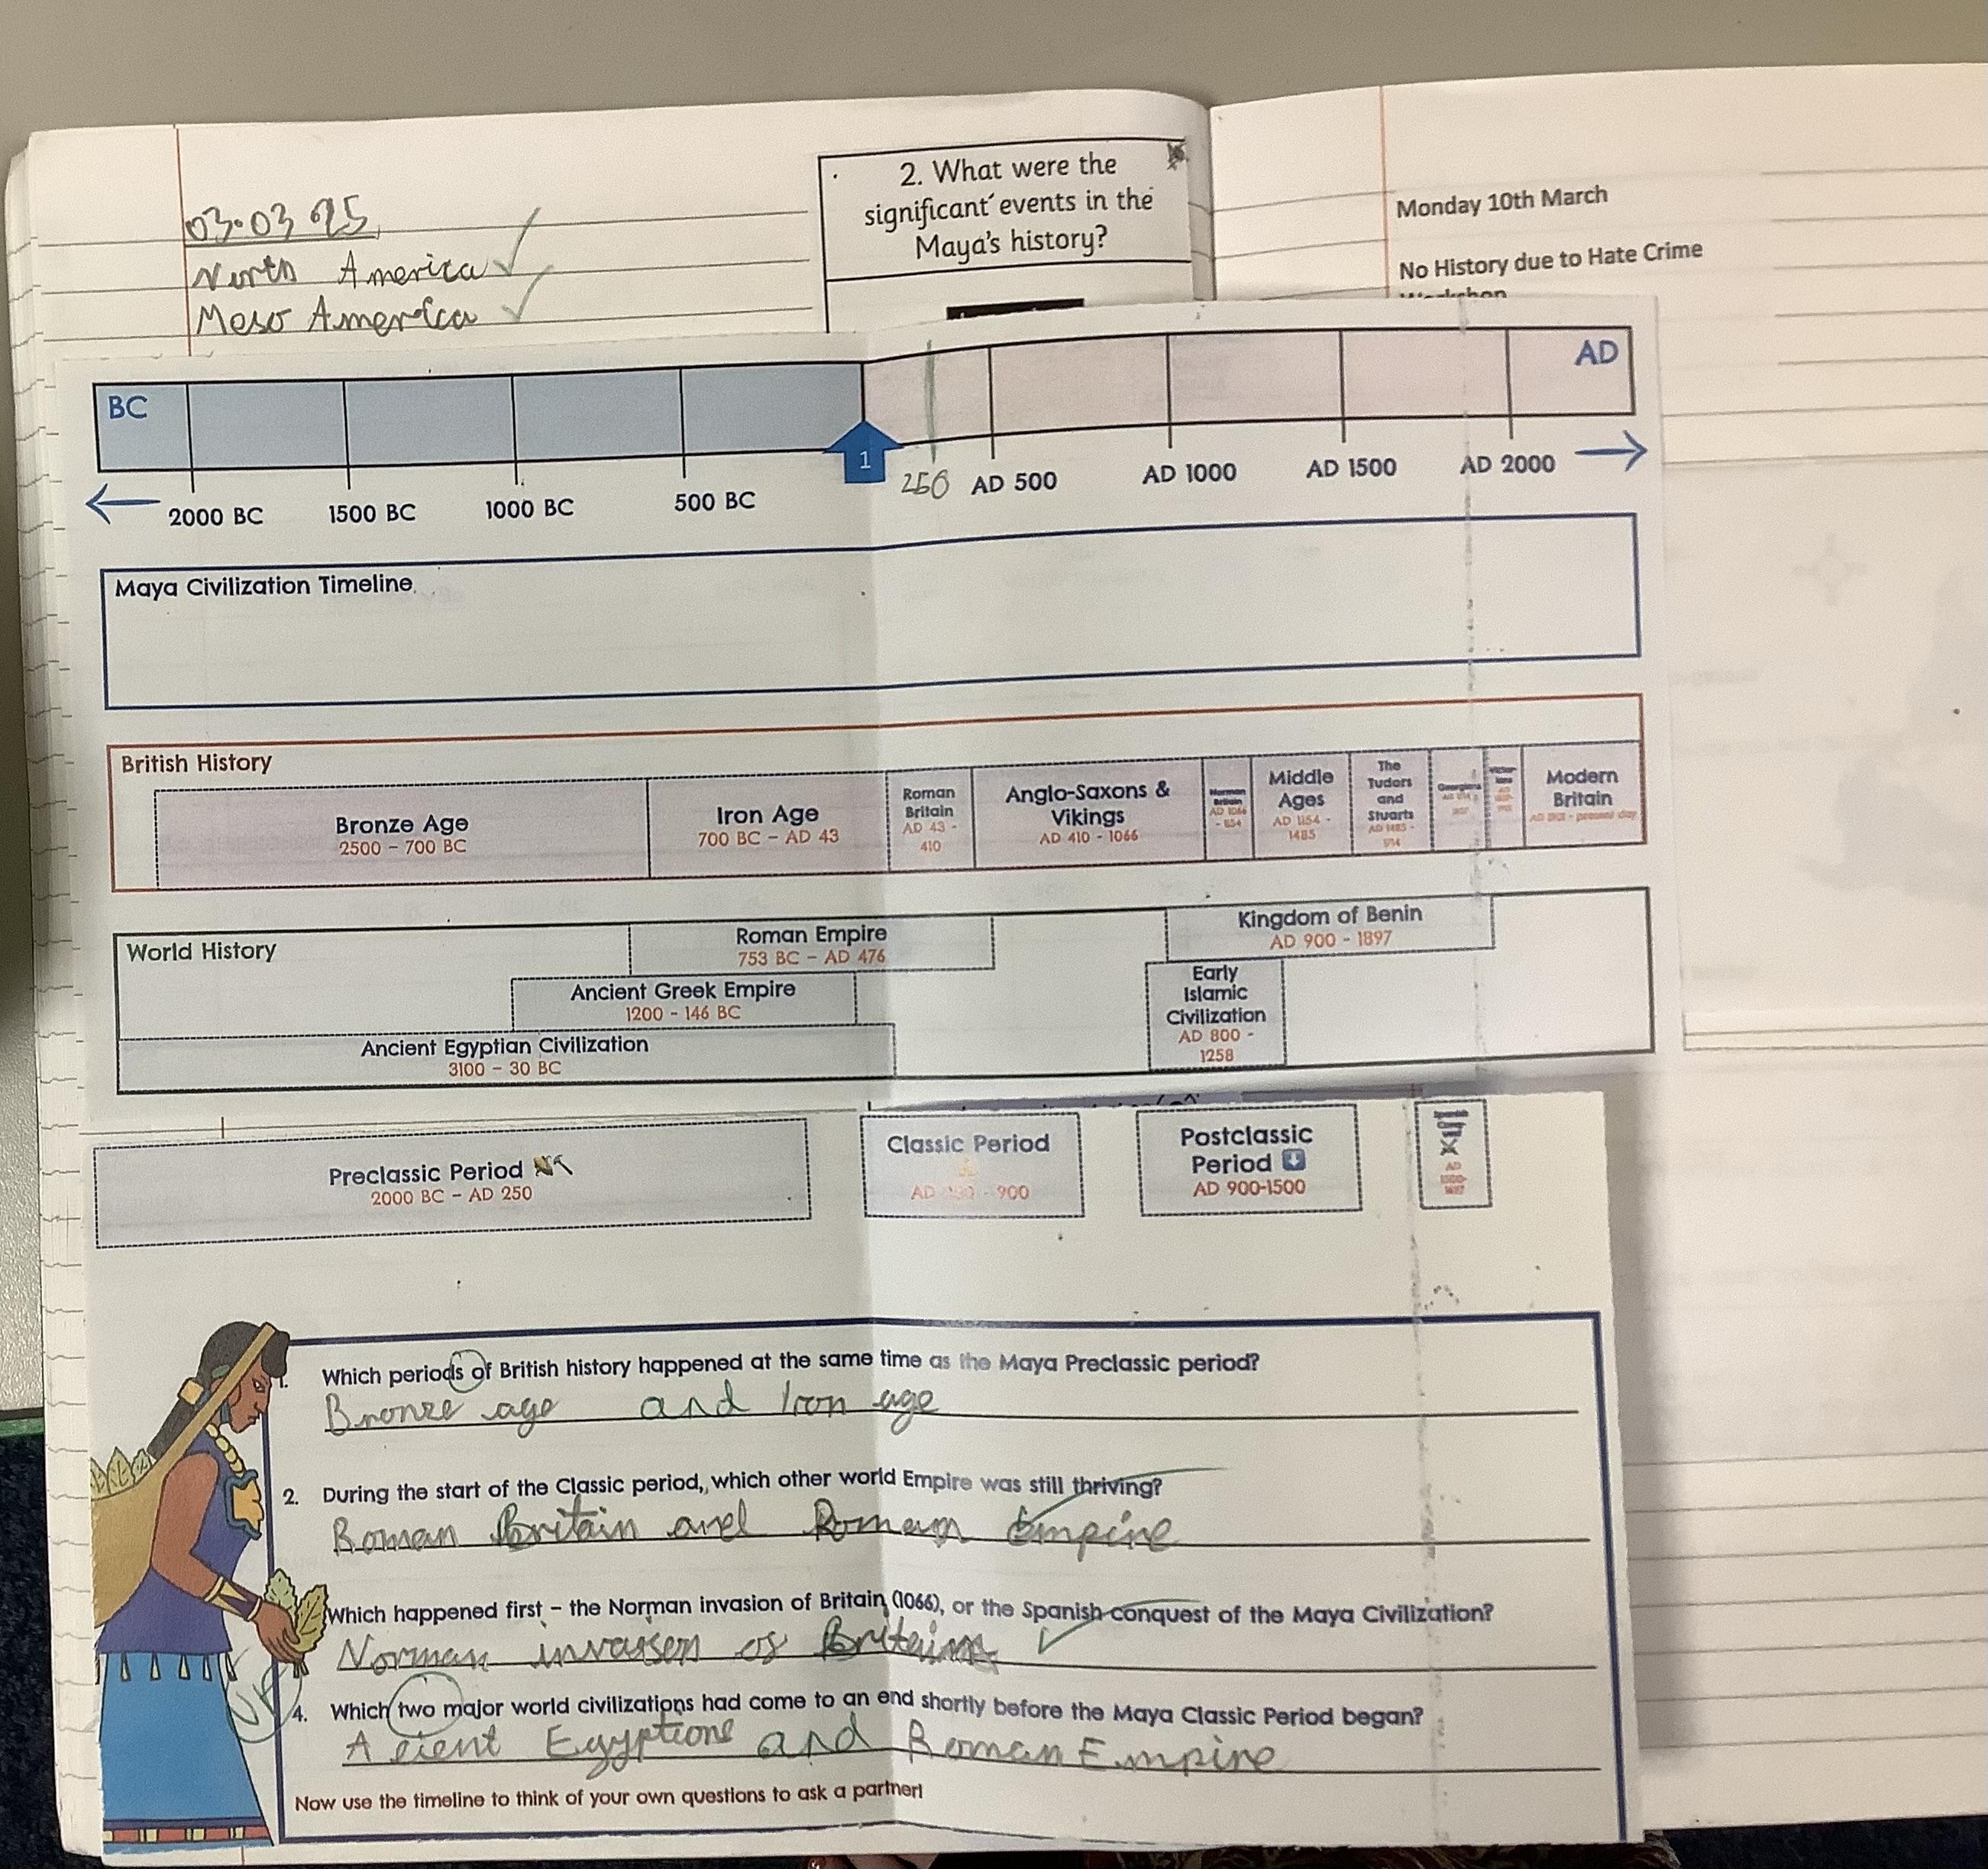 03.03 25
North America
Meso America
2. What were the
significant events in the
Maya's history?
Monday 10th March
No History due to Hate Crime
Workshop
BC
AD
1
250
2000 BC
1500 BC
1000 BC
500 BC
AD 500
AD 1000
AD 1500
AD 2000
Maya Civilization Timeline
British History
Bronze Age
2500 – 700 BC
Iron Age
700 BC – AD 43
Roman
Britain
AD 43 -
410
Anglo-Saxons &
Vikings
AD 410 - 1066
Norman
Britain
AD 1066
- 1154
Middle
Ages
AD 1154 -
1485
The
Tudors
and
Stuarts
AD 1485 -
1714
Georgians
Modern
Britain
AD 1901 - present day
World History
Roman Empire
753 BC – AD 476
Ancient Greek Empire
1200 - 146 BC
Ancient Egyptian Civilization
3100 – 30 BC
Kingdom of Benin
AD 900 - 1897
Early
Islamic
Civilization
AD 800 -
1258
Preclassic Period
2000 BC – AD 250
Classic Period
AD - 900
Postclassic
Period
AD 900-1500
Spanish
AD
1. Which periods of British history happened at the same time as the Maya Preclassic period?
Bronze age and Iron age
2. During the start of the Classic period, which other world Empire was still thriving?
Roman Britain and Roman Empire
Which happened first – the Norman invasion of Britain (1066), or the Spanish conquest of the Maya Civilization?
Norman invasen of
VF
4. Which two major world civilizations had come to an end shortly before the Maya Classic Period began?
A cient Egyptions and Roman Empire
Now use the timeline to think of your own questions to ask a partner!